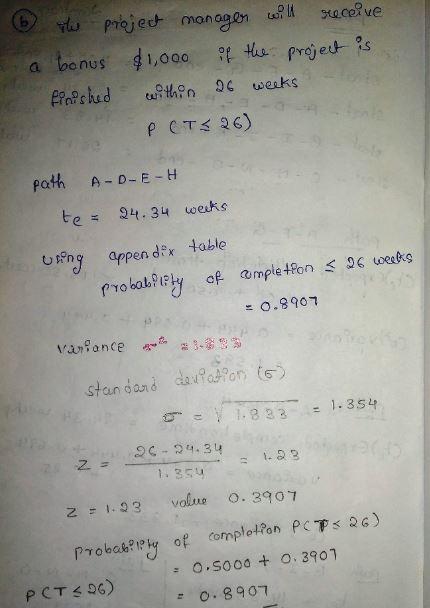 (b) The project manager will receive
a bonus $1,000 if the project is
finished within 26 weeks
P (T ≤ 26)
path A-D-E-H
te = 24.34 weeks
using appendix table
probability of completion ≤ 26 weeks
= 0.8907
variance σ² = 1.833
standard deviation (σ)
σ = √1.833 = 1.354
Z = (26 - 24.34) / 1.354 = 1.23
Z = 1.23 value 0.3907
probability of completion P(T ≤ 26)
= 0.5000 + 0.3907
P(T ≤ 26) = 0.8907